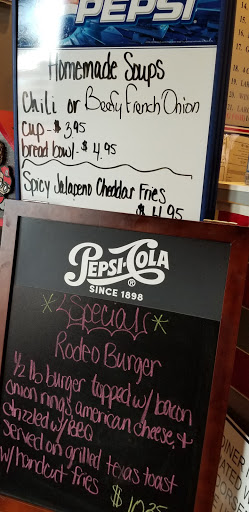 PEPSI
Homemade Soups
Chili or Beefy French Onion
cup - $3.95
bread bowl - $4.95
Spicy Jalapeno Cheddar Fries
$4.95
PEPSI-COLA
®
SINCE 1898
Special
Rodeo Burger
1/2 lb burger topped w/ bacon
onion rings, american cheese, &
drizzled w/ BBQ
served on grilled texas toast
w/ handcut fries